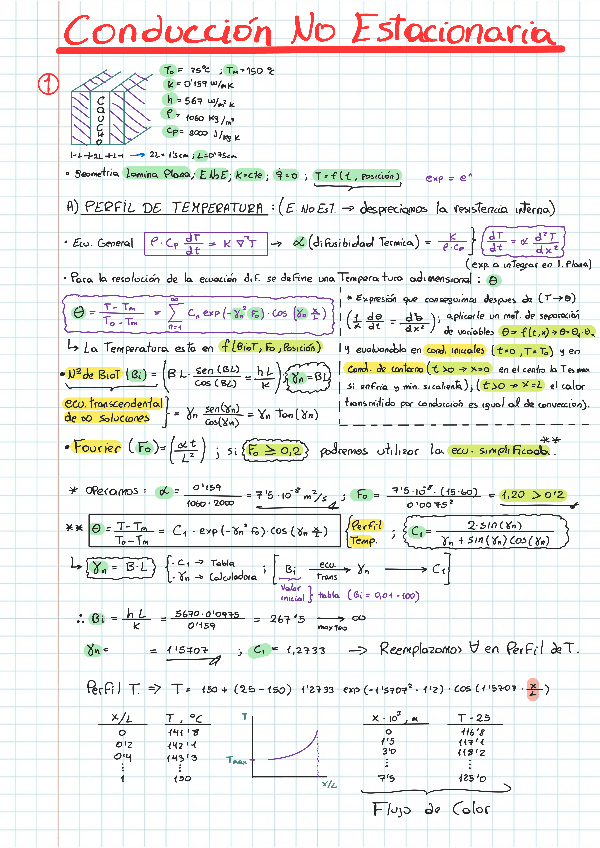 Conducción No Estacionaria
①
T₀ = 25ºC ; T∞ = 150 ºC
K = 0'159 W/mK
h = 567 W/m²K
ρ = 1060 Kg/m³
Cp = 2000 J/Kg K
CAUCHO
|-L-+-2L-+-L-| → 2L = 1'5cm ; L = 0'75cm
• Geometria Lamina Plana; E No E; K=cte; q̇=0 ; T = f(t, posición)
exp = e^
A) PERFIL DE TEMPERATURA : (E. No EsT. → despreciamos la resistencia interna)
• Ecu. General ρ·Cp dT/dt = K ∇²T → α (difusibidad Termica) = K/ρ·Cp } dT/dt = α d²T/dx²
(exp. a integrar en l. Plana)
• Para la resolución de la ecuación dif. se define una Temperatura adimensional : θ
θ = T - T∞ / T₀ - T∞ = ∞ Σ n=1 Cn exp(-γn² F₀) · cos(γn x/L)
↳ La Temperatura esta en f(BioT, Fo, Posición)
* Expresión que conseguimos despues de (T→θ)
(1/α dθ/dt = d²θ/dx²); aplicarle un met. de separación
de variables θ = f(t,x) → θ = θt·θx
y evaluandola en cond. iniciales (t=0, T=T₀) y en
Cond. de contorno (t>0 → x=0 en el cento la T es max
si enfria y min. si calienta); (t>0 → x=L el calor
transmitido por conducción es igual al de convección).
• Nº de BioT (Bi) = (BL · sen(BL)/cos(BL) = hL/K) } γn = BL
ecu. transcendental
de ∞ soluciones = γn sen(γn)/cos(γn) = γn Tan(γn)
• Fourier (Fo) = (αt/L²) ; si { Fo ≥ 0,2 } podremos utilizar la ecu. simplificada.**
* Operamos : α = 0'159 / 1060·2000 = 7'5·10⁻⁸ m²/s ; Fo = 7'5·10⁻⁸·(15·60) / 0'0075² = 1,20 > 0'2
** θ = T - T∞ / T₀ - T∞ = C₁ · exp(-γn² Fo) · cos(γn x/L) { Perfil Temp. ; C₁ = 2·sin(γn) / γn + sin(γn) cos(γn)
↳ { γn = B·L } { · C₁ → Tabla
· γn → Calculadora ; [ Bi ecu trans → γn → C₁ ]
valor inicial } tabla (Bi = 0,01 - 100)
∴ Bi = hL/K = 5670·0'0975 / 0'159 = 267'5 → max 100 ∞
γn = = 1'5707 ; C₁ = 1,2733 → Reemplazamos ∀ en Perfil de T.
Perfil T. ⇒ T = 150 + (25-150) 1'2733 exp(-1'5707² · 1'2) · cos(1'5707 · x/L)
x/L T, ºC
0 141'8
0'2 142'1
0'4 143'3
⋮ ⋮
1 150
T
Tmax
x/L
x·10³, m T - 25
0 116'8
1'5 117'1
3'0 118'2
⋮ ⋮
7'5 125'0
Flujo de Calor